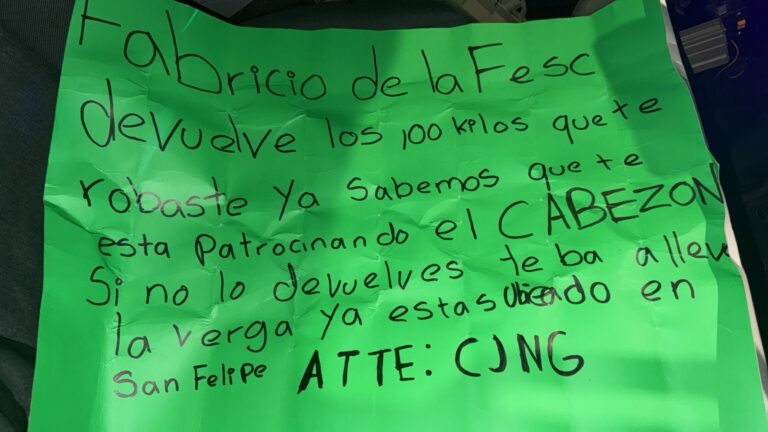 Fabricio de la Fesc
devuelve los 100 kilos que te
robaste ya sabemos que te
esta patrocinando el CABEZON
Si no lo devuelves te ba alleve
la verga ya estas ubicado en
San Felipe ATTE: CJNG